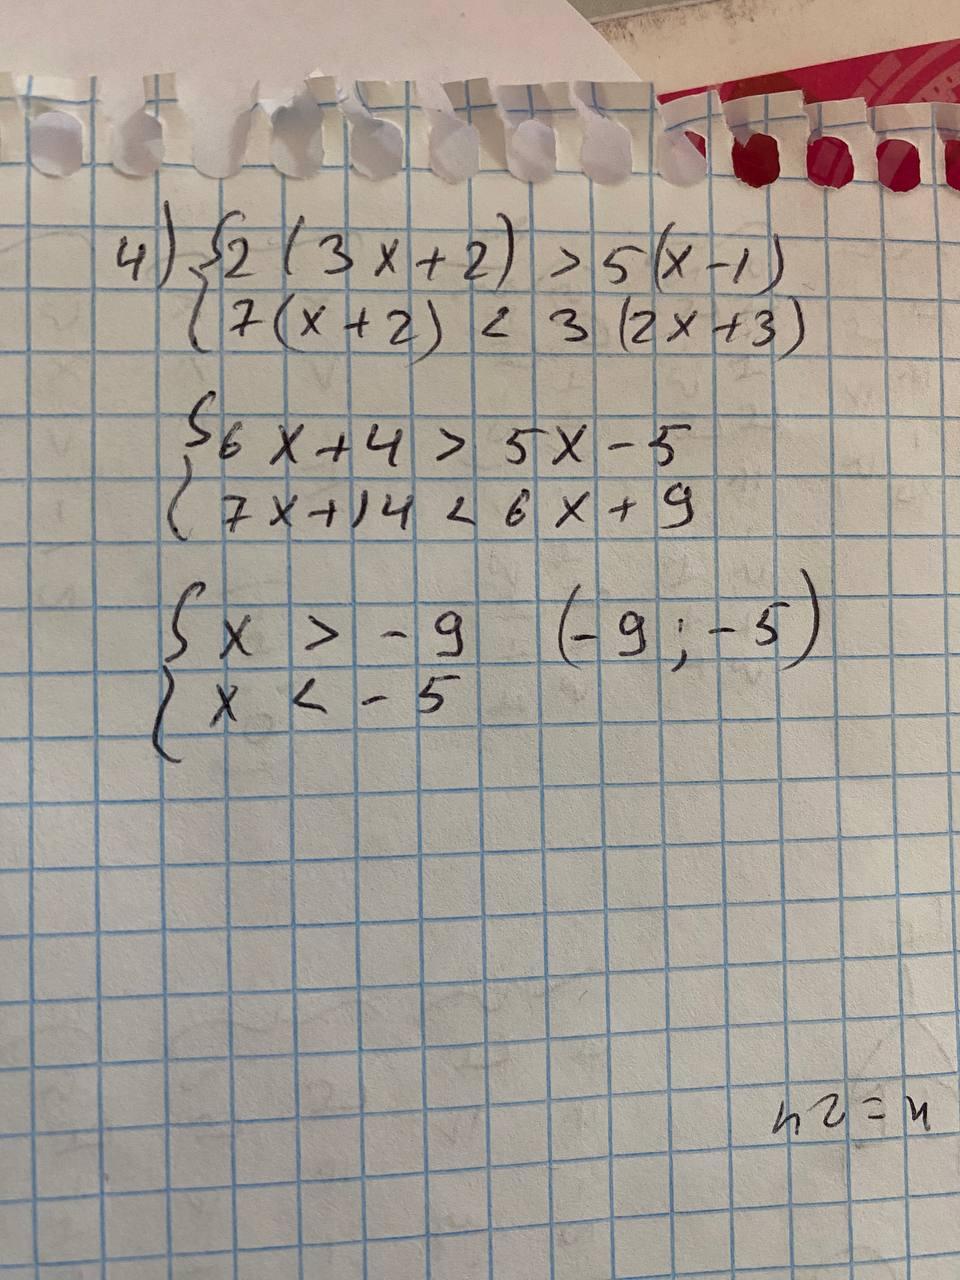 4) { 2 (3x+2) > 5(x-1)
{ 7(x+2) < 3 (2x+3)
{ 6x+4 > 5x-5
{ 7x+14 < 6x+9
{ x > -9 (-9; -5)
{ x < -5